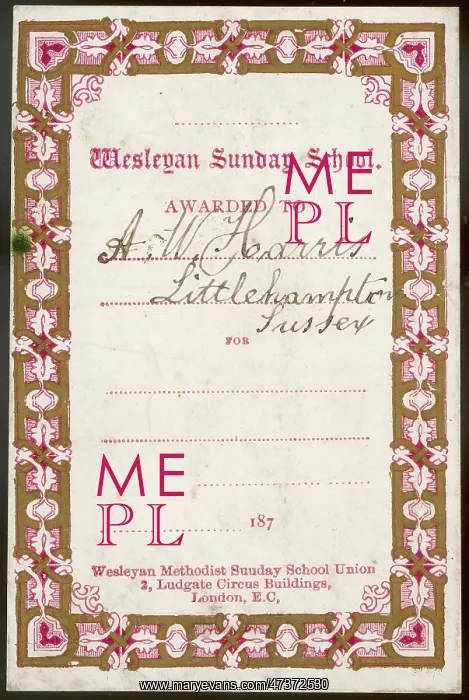 Wesleyan Sunday School.
AWARDED TO
A. W. Harris
Littlehampton
Sussex
FOR
187
Wesleyan Methodist Sunday School Union
2, Ludgate Circus Buildings,
London, E.C,
ME
PL
ME
PL
www.maryevans.com/47372530